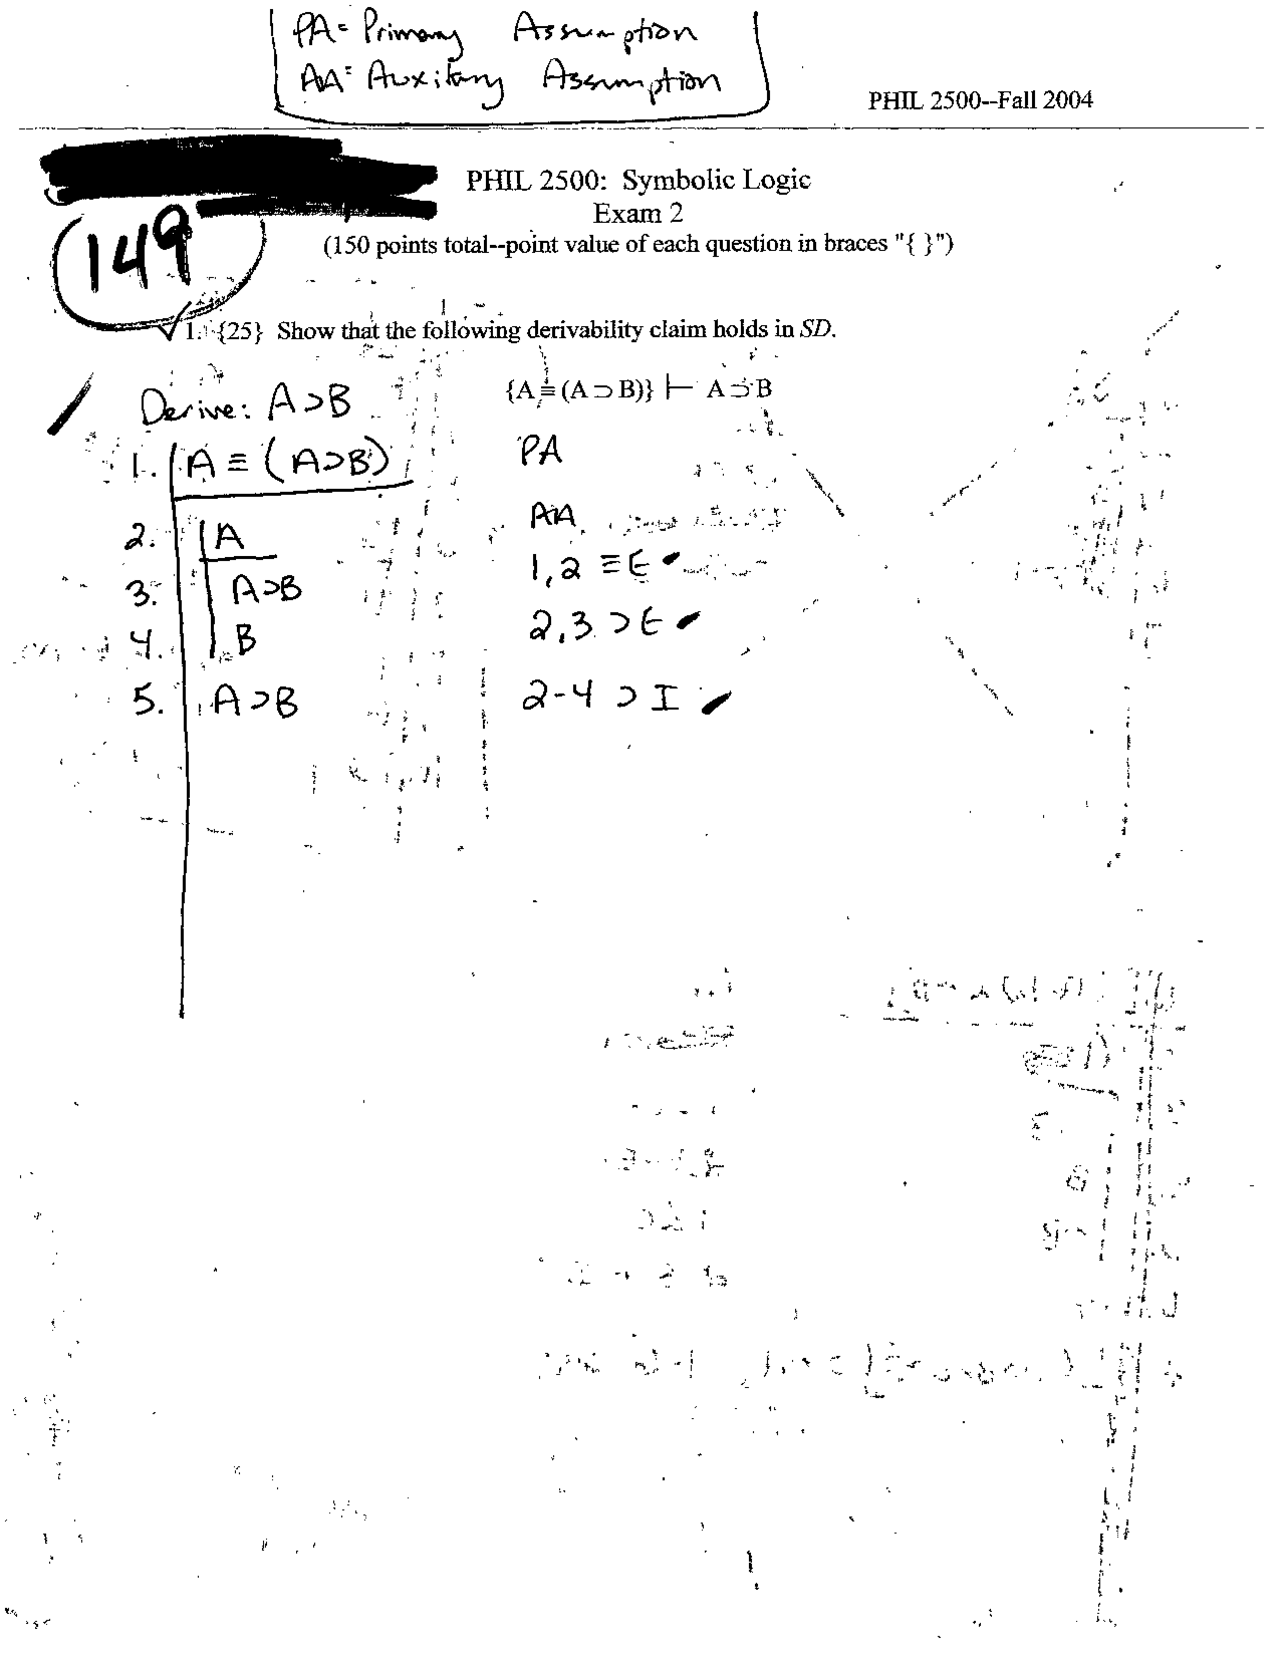 PA = Primary Assumption
AA = Auxiliary Assumption
PHIL 2500--Fall 2004
PHIL 2500: Symbolic Logic
Exam 2
149
(150 points total--point value of each question in braces "{ }")
✓ 1. {25} Show that the following derivability claim holds in SD.
{A ≡ (A ⊃ B)} ⊢ A ⊃ B
Derive: A ⊃ B
1. A ≡ (A ⊃ B) PA
2. A AA
3. A ⊃ B 1,2 ≡E
4. B 2,3 ⊃E
5. A ⊃ B 2-4 ⊃ I